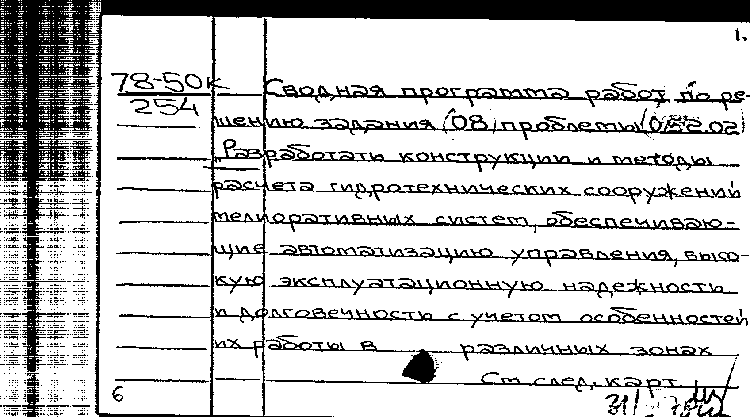 1.
78-50к
254
Сводная программа работ по ре-
шению задания (08) проблемы (052.02)
„Разработать конструкции и методы
расчета гидротехнических сооружений
мелиоративных систем, обеспечиваю-
щие автоматизацию управления, высо-
кую эксплуатационную надежность
и долговечность с учетом особенностей
их работы в различных зонах
См. след. карт.
6